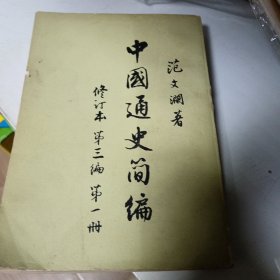 范文瀾著
中國通史简編
修订本 第三編 第一册